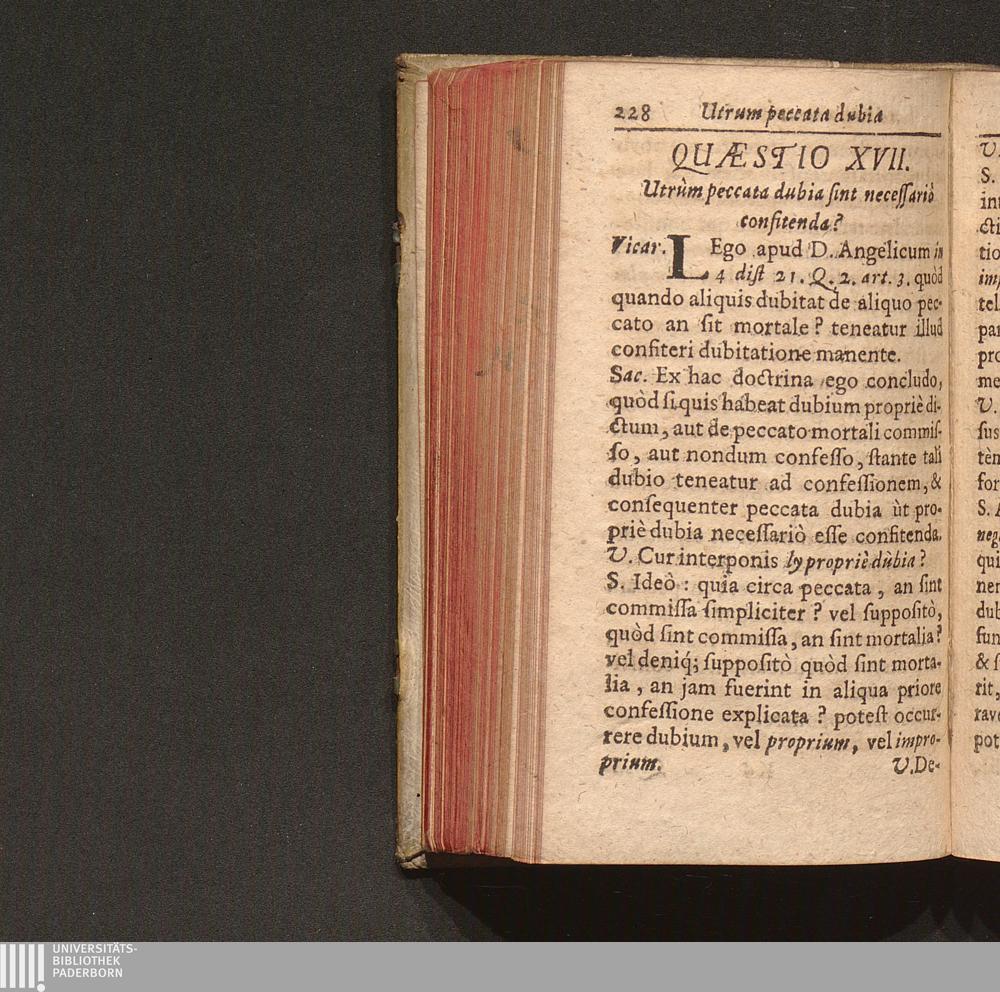 228 Utrum peccata dubia
QUÆSTIO XVII.
Utrùm peccata dubia ſint neceſſariò
confitenda?
Vicar. LEgo apud D. Angelicum in
4 diſt 21. Q. 2. art. 3. quòd
quando aliquis dubitat de aliquo pec-
cato an ſit mortale? teneatur illud
confiteri dubitatione manente.
Sac. Ex hac doctrina ego concludo,
quòd ſi quis habeat dubium propriè di-
ctum, aut de peccato mortali commiſ-
ſo, aut nondum confeſſo, ſtante tali
dubio teneatur ad confeſſionem, &
conſequenter peccata dubia ùt pro-
priè dubia neceſſariò eſſe confitenda.
V. Cur interponis ly propriè dùbia?
S. Ideò: quia circa peccata, an ſint
commiſſa ſimpliciter? vel ſuppoſitò,
quòd ſint commiſſa, an ſint mortalia?
vel deniq́; ſuppoſitò quòd ſint morta-
lia, an jam fuerint in aliqua priore
confeſſione explicata? poteſt occur-
rere dubium, vel proprium, vel impro-
prium.
V. De-
V.
S.
UNIVERSITÄTS-
BIBLIOTHEK
PADERBORN